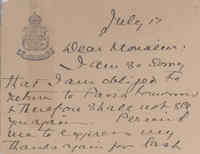 July 17
Dear Monsieur:
I am so sorry
that I am obliged to
return to Paris tomorrow
& therefore shall not see
you again. Permit
me to express my
thanks again for